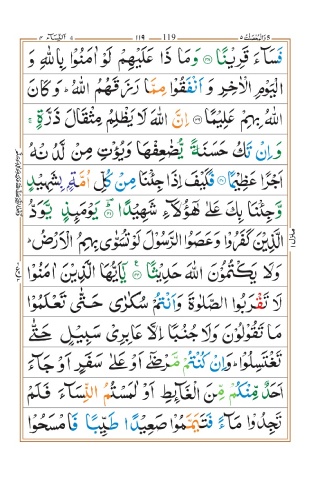 119
فَسَآءَ قَرِيْنًا ﴿۳۸﴾ وَمَا ذَا عَلَيْهِمْ لَوْ اٰمَنُوْا بِاللّٰهِ وَ
الْيَوْمِ الْاٰخِرِ وَ اَنْفَقُوْا مِمَّا رَزَقَهُمُ اللّٰهُ ؕ وَ كَانَ
اللّٰهُ بِهِمْ عَلِيْمًا ﴿۳۹﴾ اِنَّ اللّٰهَ لَا يَظْلِمُ مِثْقَالَ ذَرَّةٍ ۚ
وَاِنْ تَكُ حَسَنَةً يُّضٰعِفْهَا وَيُؤْتِ مِنْ لَّدُنْهُ
اَجْرًا عَظِيْمًا ﴿۴۰﴾ فَكَيْفَ اِذَا جِئْنَا مِنْ كُلِّ اُمَّةٍۭ بِشَهِيْدٍ
وَّجِئْنَا بِكَ عَلٰى هٰٓؤُلَآءِ شَهِيْدًا ﴿۴۱﴾ يَوْمَئِذٍ يَّوَدُّ
الَّذِيْنَ كَفَرُوْا وَعَصَوُا الرَّسُوْلَ لَوْ تُسَوّٰى بِهِمُ الْاَرْضُ ؕ
وَلَا يَكْتُمُوْنَ اللّٰهَ حَدِيْثًا ﴿۴۲﴾ يٰٓاَيُّهَا الَّذِيْنَ اٰمَنُوْا
لَا تَقْرَبُوا الصَّلٰوةَ وَاَنْتُمْ سُكٰرٰى حَتّٰى تَعْلَمُوْا
مَا تَقُوْلُوْنَ وَلَا جُنُبًا اِلَّا عَابِرِيْ سَبِيْلٍ حَتّٰى
تَغْتَسِلُوْا ؕ وَاِنْ كُنْتُمْ مَّرْضٰٓى اَوْ عَلٰى سَفَرٍ اَوْ جَآءَ
اَحَدٌ مِّنْكُمْ مِّنَ الْغَآئِطِ اَوْ لٰمَسْتُمُ النِّسَآءَ فَلَمْ
تَجِدُوْا مَآءً فَتَيَمَّمُوْا صَعِيْدًا طَيِّبًا فَامْسَحُوْا